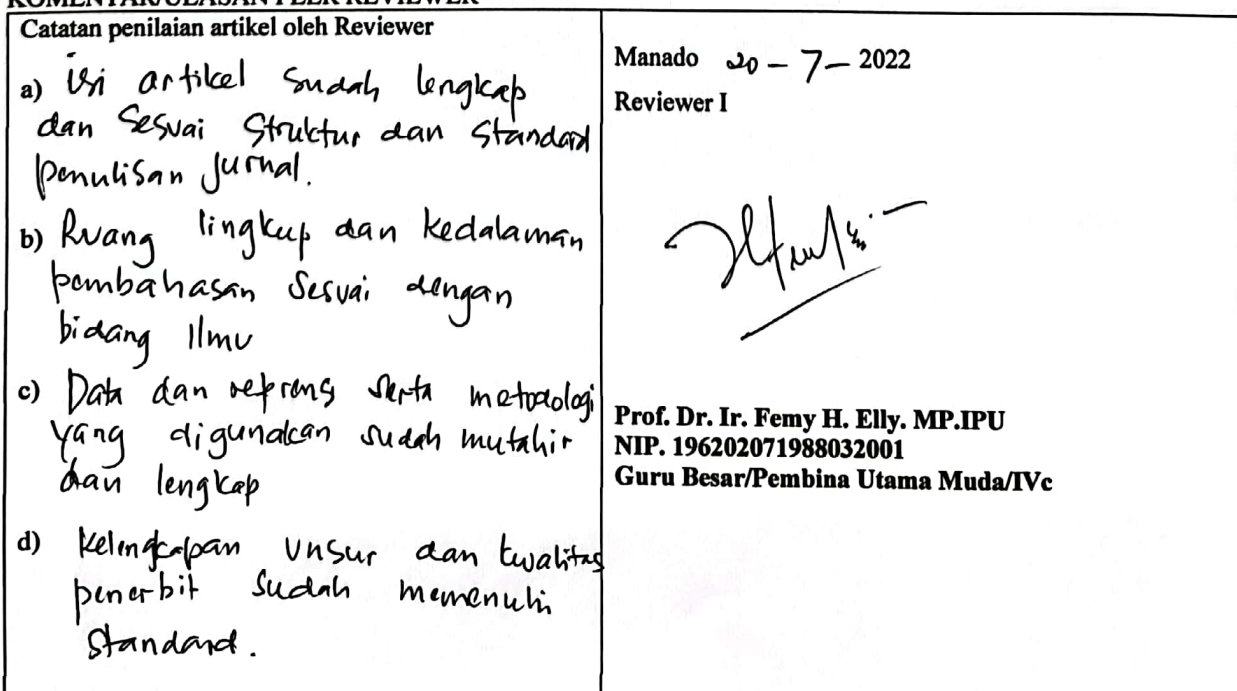 KOMENTAR/ULASAN PEER REVIEWER
Catatan penilaian artikel oleh Reviewer
a) isi artikel sudah lengkap
dan sesuai struktur dan standard
penulisan jurnal.
b) Ruang lingkup dan kedalaman
pembahasan sesuai dengan
bidang ilmu
c) Data dan refrens serta metodologi
yang digunakan sudah mutahir
dan lengkap
d) Kelengkapan unsur dan kwalitas
penerbit sudah memenuhi
standard.
Manado 20 - 7 - 2022
Reviewer I
Prof. Dr. Ir. Femy H. Elly. MP.IPU
NIP. 196202071988032001
Guru Besar/Pembina Utama Muda/IVc